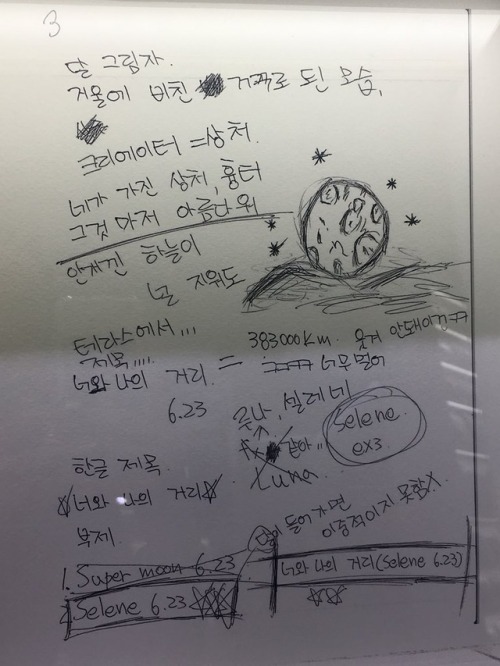 3
달 그림자.
거울에 비친 거꾸로 된 모습,
크리에이터 = 상처.
네가 가진 상처, 흉터
그것 마저 아름다워
안자긴 하늘이
널 지워도
테라스에서...
제목....
너와 나의 거리. = 383000km. 옮겨 안돼이건ㅋㅋ
ㅋㅋㅋㅋ 너무멀어
6.23
루나, 셀레네
같아..
Luna
Selene.
ex3.
한글 제목.
☆너와 나의 거리☆
부제.
달이 들어가면
이중적이지 못함X
1. Super moon 6.23
2. Selene 6.23 ☆☆
너와 나의 거리(Selene 6.23)
☆☆